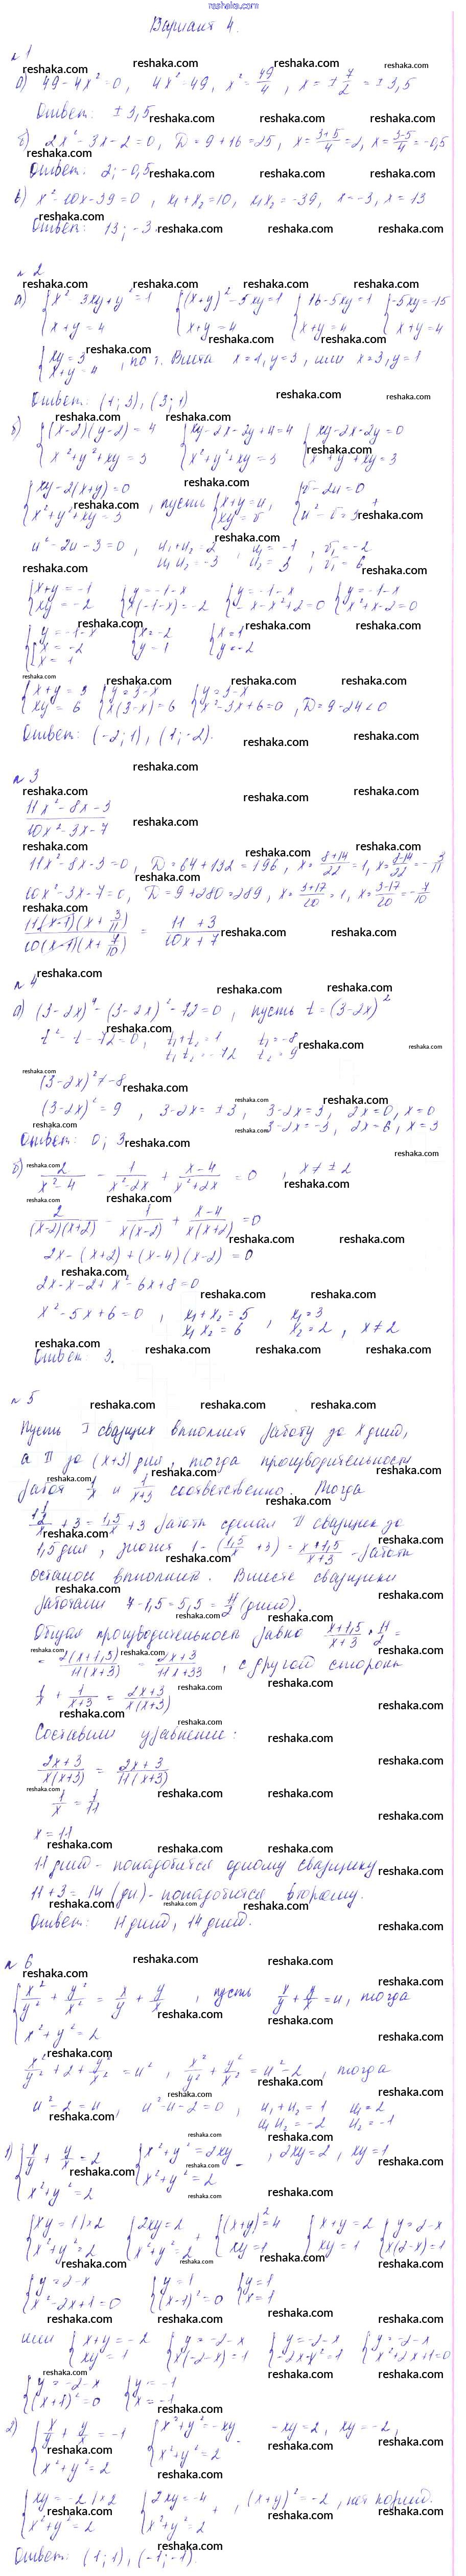 reshaka.com
Вариант 4.
№1
а) 49 - 4x² = 0, 4x² = 49, x² = 49/4, x = ± 7/2 = ± 3,5
Ответ: ± 3,5
б) 2x² - 3x - 2 = 0, D = 9 + 16 = 25, x = (3+5)/4 = 2, x = (3-5)/4 = -0,5
Ответ: 2; -0,5
в) x² - 10x - 39 = 0, x₁ + x₂ = 10, x₁x₂ = -39, x = -3, x = 13
Ответ: 13; -3.
№2
а) { x² - 3xy + y² = 1 { (x+y)² - 5xy = 1 { 16 - 5xy = 1 { -5xy = -15
x + y = 4 x + y = 4 x + y = 4 x + y = 4
{ xy = 3
x + y = 4 , по т. Виета x = 1, y = 3, или x = 3, y = 1
Ответ: (1; 3), (3; 1)
б) { (x-2)(y-2) = 4 { xy - 2x - 2y + 4 = 4 { xy - 2x - 2y = 0
x² + y² + xy = 3 x² + y² + xy = 3 x² + y² + xy = 3
{ xy - 2(x+y) = 0 , пусть { x + y = u, { v - 2u = 0
x² + y² + xy = 3 xy = v u² - v = 3
u² - 2u - 3 = 0, u₁ + u₂ = 2 u₁ = -1, v₁ = -2
u₁ u₂ = -3 u₂ = 3, v₁ = 6
{ x + y = -1 { y = -1 - x { y = -1 - x { y = -1 - x
xy = -2 x(-1-x) = -2 -x - x² + 2 = 0 x² + x - 2 = 0
{ y = -1 - x { x = -2 { x = 1
x = -2 y = 1 y = -2
x = 1
{ x + y = 3 { y = 3 - x { y = 3 - x
xy = 6 x(3-x) = 6 x² - 3x + 6 = 0, D = 9 - 24 < 0
Ответ: (-2; 1), (1; -2).
№3
(11x² - 8x - 3)/(10x² - 3x - 7)
11x² - 8x - 3 = 0, D = 64 + 132 = 196, x = (8+14)/22 = 1, x = (8-14)/22 = -3/11
10x² - 3x - 7 = 0, D = 9 + 280 = 289, x = (3+17)/20 = 1, x = (3-17)/20 = -7/10
11(x-1)(x + 3/11) / 10(x-1)(x + 7/10) = (11 + 3)/(10x + 7)
№4
а) (3-2x)⁴ - (3-2x)² - 72 = 0, пусть t = (3-2x)²
t² - t - 72 = 0, t₁ + t₂ = 1 t₁ = -8
t₁ t₂ = -72 t₂ = 9
(3-2x)² ≠ -8
(3-2x)² = 9, 3-2x = ±3, 3-2x = 3, 2x = 0, x = 0
3-2x = -3, 2x = 6, x = 3
Ответ: 0; 3
б) 2/(x²-4) - 1/(x²-2x) + (x-4)/(x²+2x) = 0, x ≠ ± 2
2/((x-2)(x+2)) - 1/(x(x-2)) + (x-4)/(x(x+2)) = 0
2x - (x+2) + (x-4)(x-2) = 0
2x - x - 2 + x² - 6x + 8 = 0
x² - 5x + 6 = 0, x₁ + x₂ = 5 , x₁ = 3
x₁ x₂ = 6 x₂ = 2, x ≠ 2
Ответ: 3.
№5
Пусть I сварщик выполнит работу за x дней,
а II за (x+3) дня, тогда производительность
работ 1/x и 1/(x+3) соответственно. Тогда
+ 3 = 1,5/x + 3 работы сделал II сварщик за
1,5 дня, значит 1 - (1,5/x + 3) = (x+1,5)/(x+3) - работы
осталось выполнить. Вместе сварщики
работали 7 - 1,5 = 5,5 = 11/2 (дней).
Общая производительность равна (x+1,5)/(x+3) : 11/2 =
= 2(x+1,5)/(11(x+3)) = (2x+3)/(11x+33), с другой стороны
1/x + 1/(x+3) = (2x+3)/(x(x+3))
Составим уравнение:
(2x+3)/(x(x+3)) = (2x+3)/(11(x+3))
1/x = 1/11
x = 11
11 дней - понадобится одному сварщику
11 + 3 = 14 (дн.) - понадобится второму.
Ответ: 11 дней, 14 дней.
№6
{ x²/y² + y²/x² = x/y + y/x , пусть x/y + y/x = u, тогда
x² + y² = 2
x²/y² + 2 + y²/x² = u², x²/y² + y²/x² = u² - 2, тогда
u² - 2 = u, u² - u - 2 = 0, u₁ + u₂ = 1 u₁ = 2
u₁ u₂ = -2 u₂ = -1
1) { x/y + y/x = 2 { x² + y² = 2xy - , 2xy = 2, xy = 1
x² + y² = 2 x² + y² = 2
{ xy = 1 |·2 { 2xy = 2 + { (x+y)² = 4 { x + y = 2 { y = 2 - x
x² + y² = 2 x² + y² = 2 xy = 1 xy = 1 x(2-x) = 1
{ y = 2 - x { y = 1 { y = 1
x² - 2x + 1 = 0 (x-1)² = 0 x = 1
или { x + y = -2 { y = -2 - x { y = -2 - x { y = -2 - x
xy = 1 x(-2-x) = 1 -2x - x² = 1 x² + 2x + 1 = 0
{ y = -2 - x { y = -1
(x+1)² = 0 x = -1
2) { x/y + y/x = -1 { x² + y² = -xy - -xy = 2, xy = -2,
x² + y² = 2 x² + y² = 2
{ xy = -2 |·2 { 2xy = -4 + , (x+y)² = -2, нет корней.
x² + y² = 2 x² + y² = 2
Ответ: (1; 1), (-1; -1).